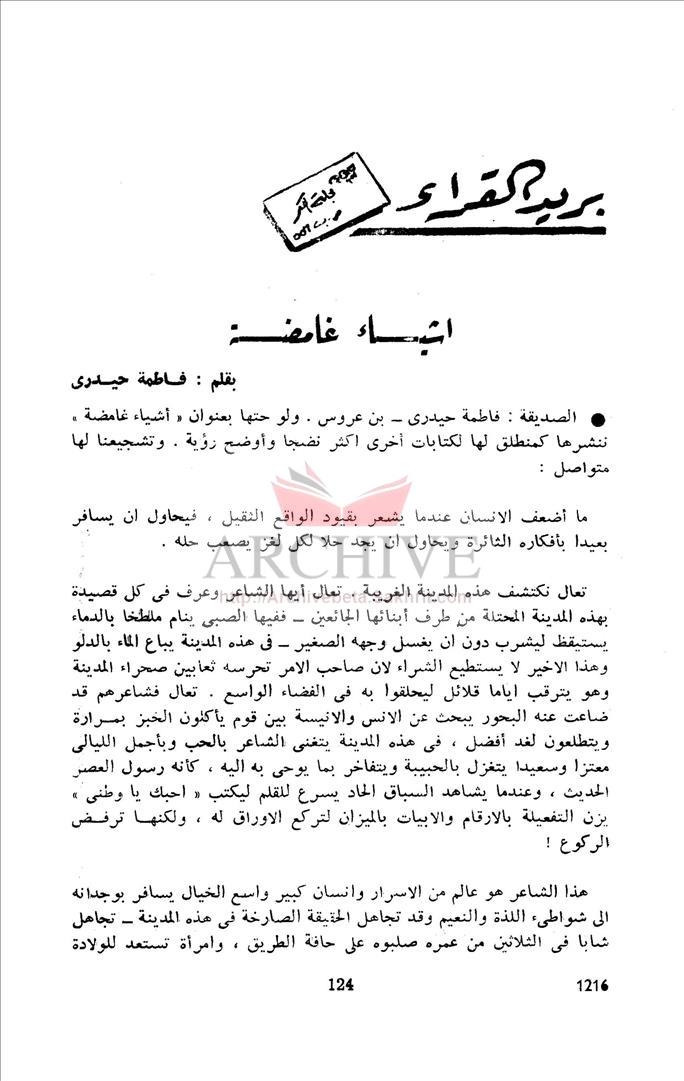 بريد القراء
اشياء غامضة
بقلم : فاطمة حيدرى
● الصديقة : فاطمة حيدرى ــ بن عروس . ولو حتها بعنوان « أشياء غامضة »
ننشرها كمنطلق لها لكتابات أخرى اكثر نضجا وأوضح رؤية . وتشجيعنا لها
متواصل :
ما أضعف الانسان عندما يشعر بقيود الواقع الثقيل ، فيحاول ان يسافر
بعيدا بأفكاره الثائرة ويحاول ان يجد حلا لكل لغز يصعب حله .
ARCHIVE
تعال نكتشف هذه المدينة الغريبة . تعال أيها الشاعر وعرف فى كل قصيدة
http://Archivebeta.Sakhrit.com
بهذه المدينة المحتلة من طرف أبنائها الجائعين ــ ففيها الصبى ينام ملطخا بالدماء
يستيقظ ليشرب دون ان يغسل وجهه الصغير ــ فى هذه المدينة يباع الماء بالدلو
وهذا الاخير لا يستطيع الشراء لان صاحب الامر تحرسه ثعابين صحراء المدينة
وهو يترقب اياما قلائل ليحلقوا به فى الفضاء الواسع . تعال فشاعرهم قد
ضاعت عنه البحور يبحث عن الانس والانيسة بين قوم يأكلون الخبز بمرارة
ويتطلعون لغد أفضل ، فى هذه المدينة يتغنى الشاعر بالحب وبأجمل الليالى
معتزا وسعيدا يتغزل بالحبيبة ويتفاخر بما يوحى به اليه ، كأنه رسول العصر
الحديث ، وعندما يشاهد السباق الحاد يسرع للقلم ليكتب « احبك يا وطنى »
يزن التفعيلة بالارقام والابيات بالميزان لتركع الاوراق له ، ولكنها ترفض
الركوع !
هذا الشاعر هو عالم من الاسرار وانسان كبير واسع الخيال يسافر بوجدانه
الى شواطىء اللذة والنعيم وقد تجاهل الحقيقة الصارخة فى هذه المدينة ــ تجاهل
شابا فى الثلاثين من عمره صلبوه على حافة الطريق ، وامرأة تستعد للولادة
1216
124